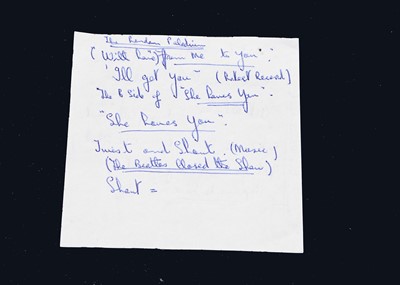 The London Palladium
( Will have) "From Me to You".
"I'll get you" (Latest Record)
The B Side of "She Loves You".
"She Loves You".
Twist and Shout. (Music)
(The Beatles Closed the Show)
Shout =